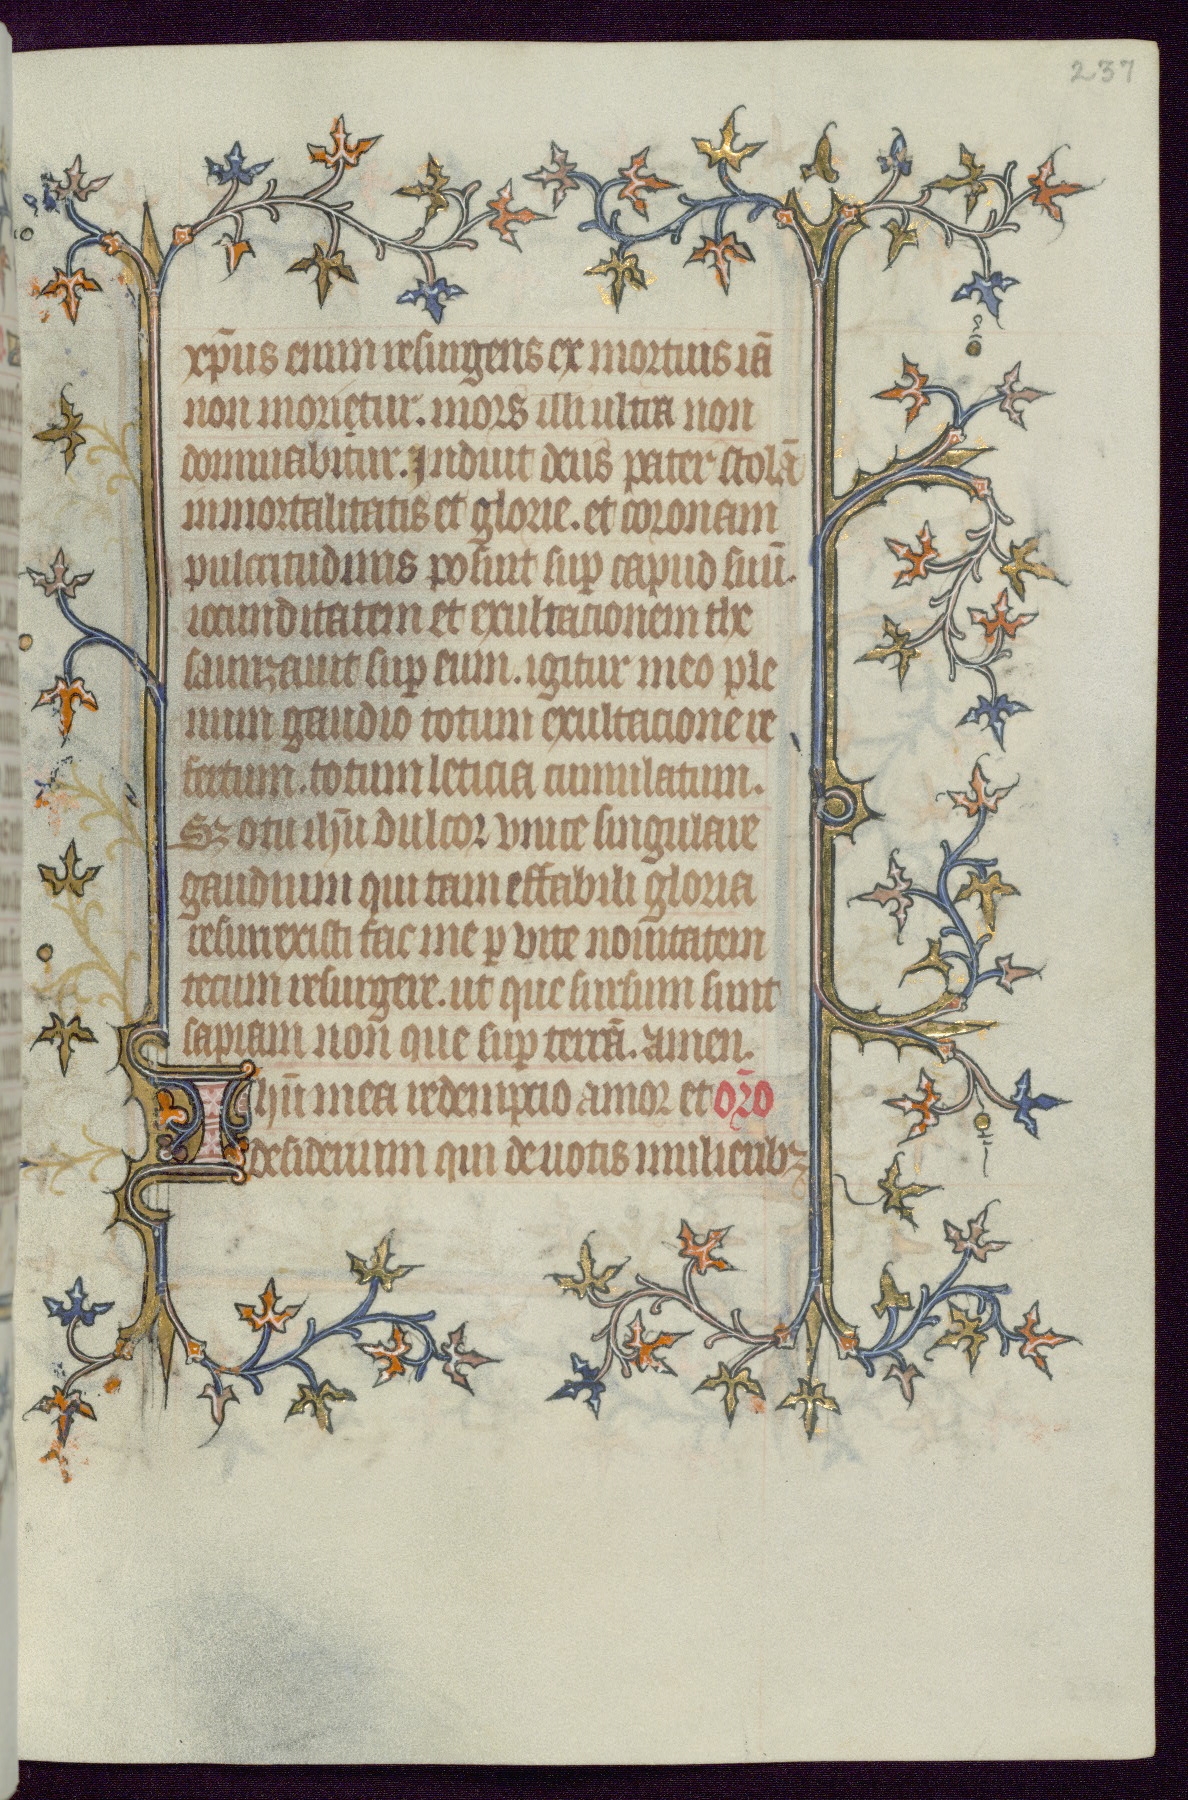 237
xp̄us enim resurgens ex mortuis iā
non morietur. mors illi ultra non
dominabitur. Induit deus pater stolā
inmortalitatis et glorie. et coronam
pulcritudinis posuit suꝑ capud suū.
iocunditatem et exultacionem the
saurizauit suꝑ eum. igitur meo ple
num gaudio totum exultacione re
fertum. totum leticia cumulatum.
Sꝫ o tu ih̄u dulcor vnice singulare
gaudium qui tam effabili gloria
resurrexisti fac me ꝑ vite nouitatem
tecum resurgere. ut que sursum sunt
sapiam non que suꝑ terrā. Amen.
Ihū mea redempcio amor et or̄o
desiderium qui deuotis mulieribꝫ